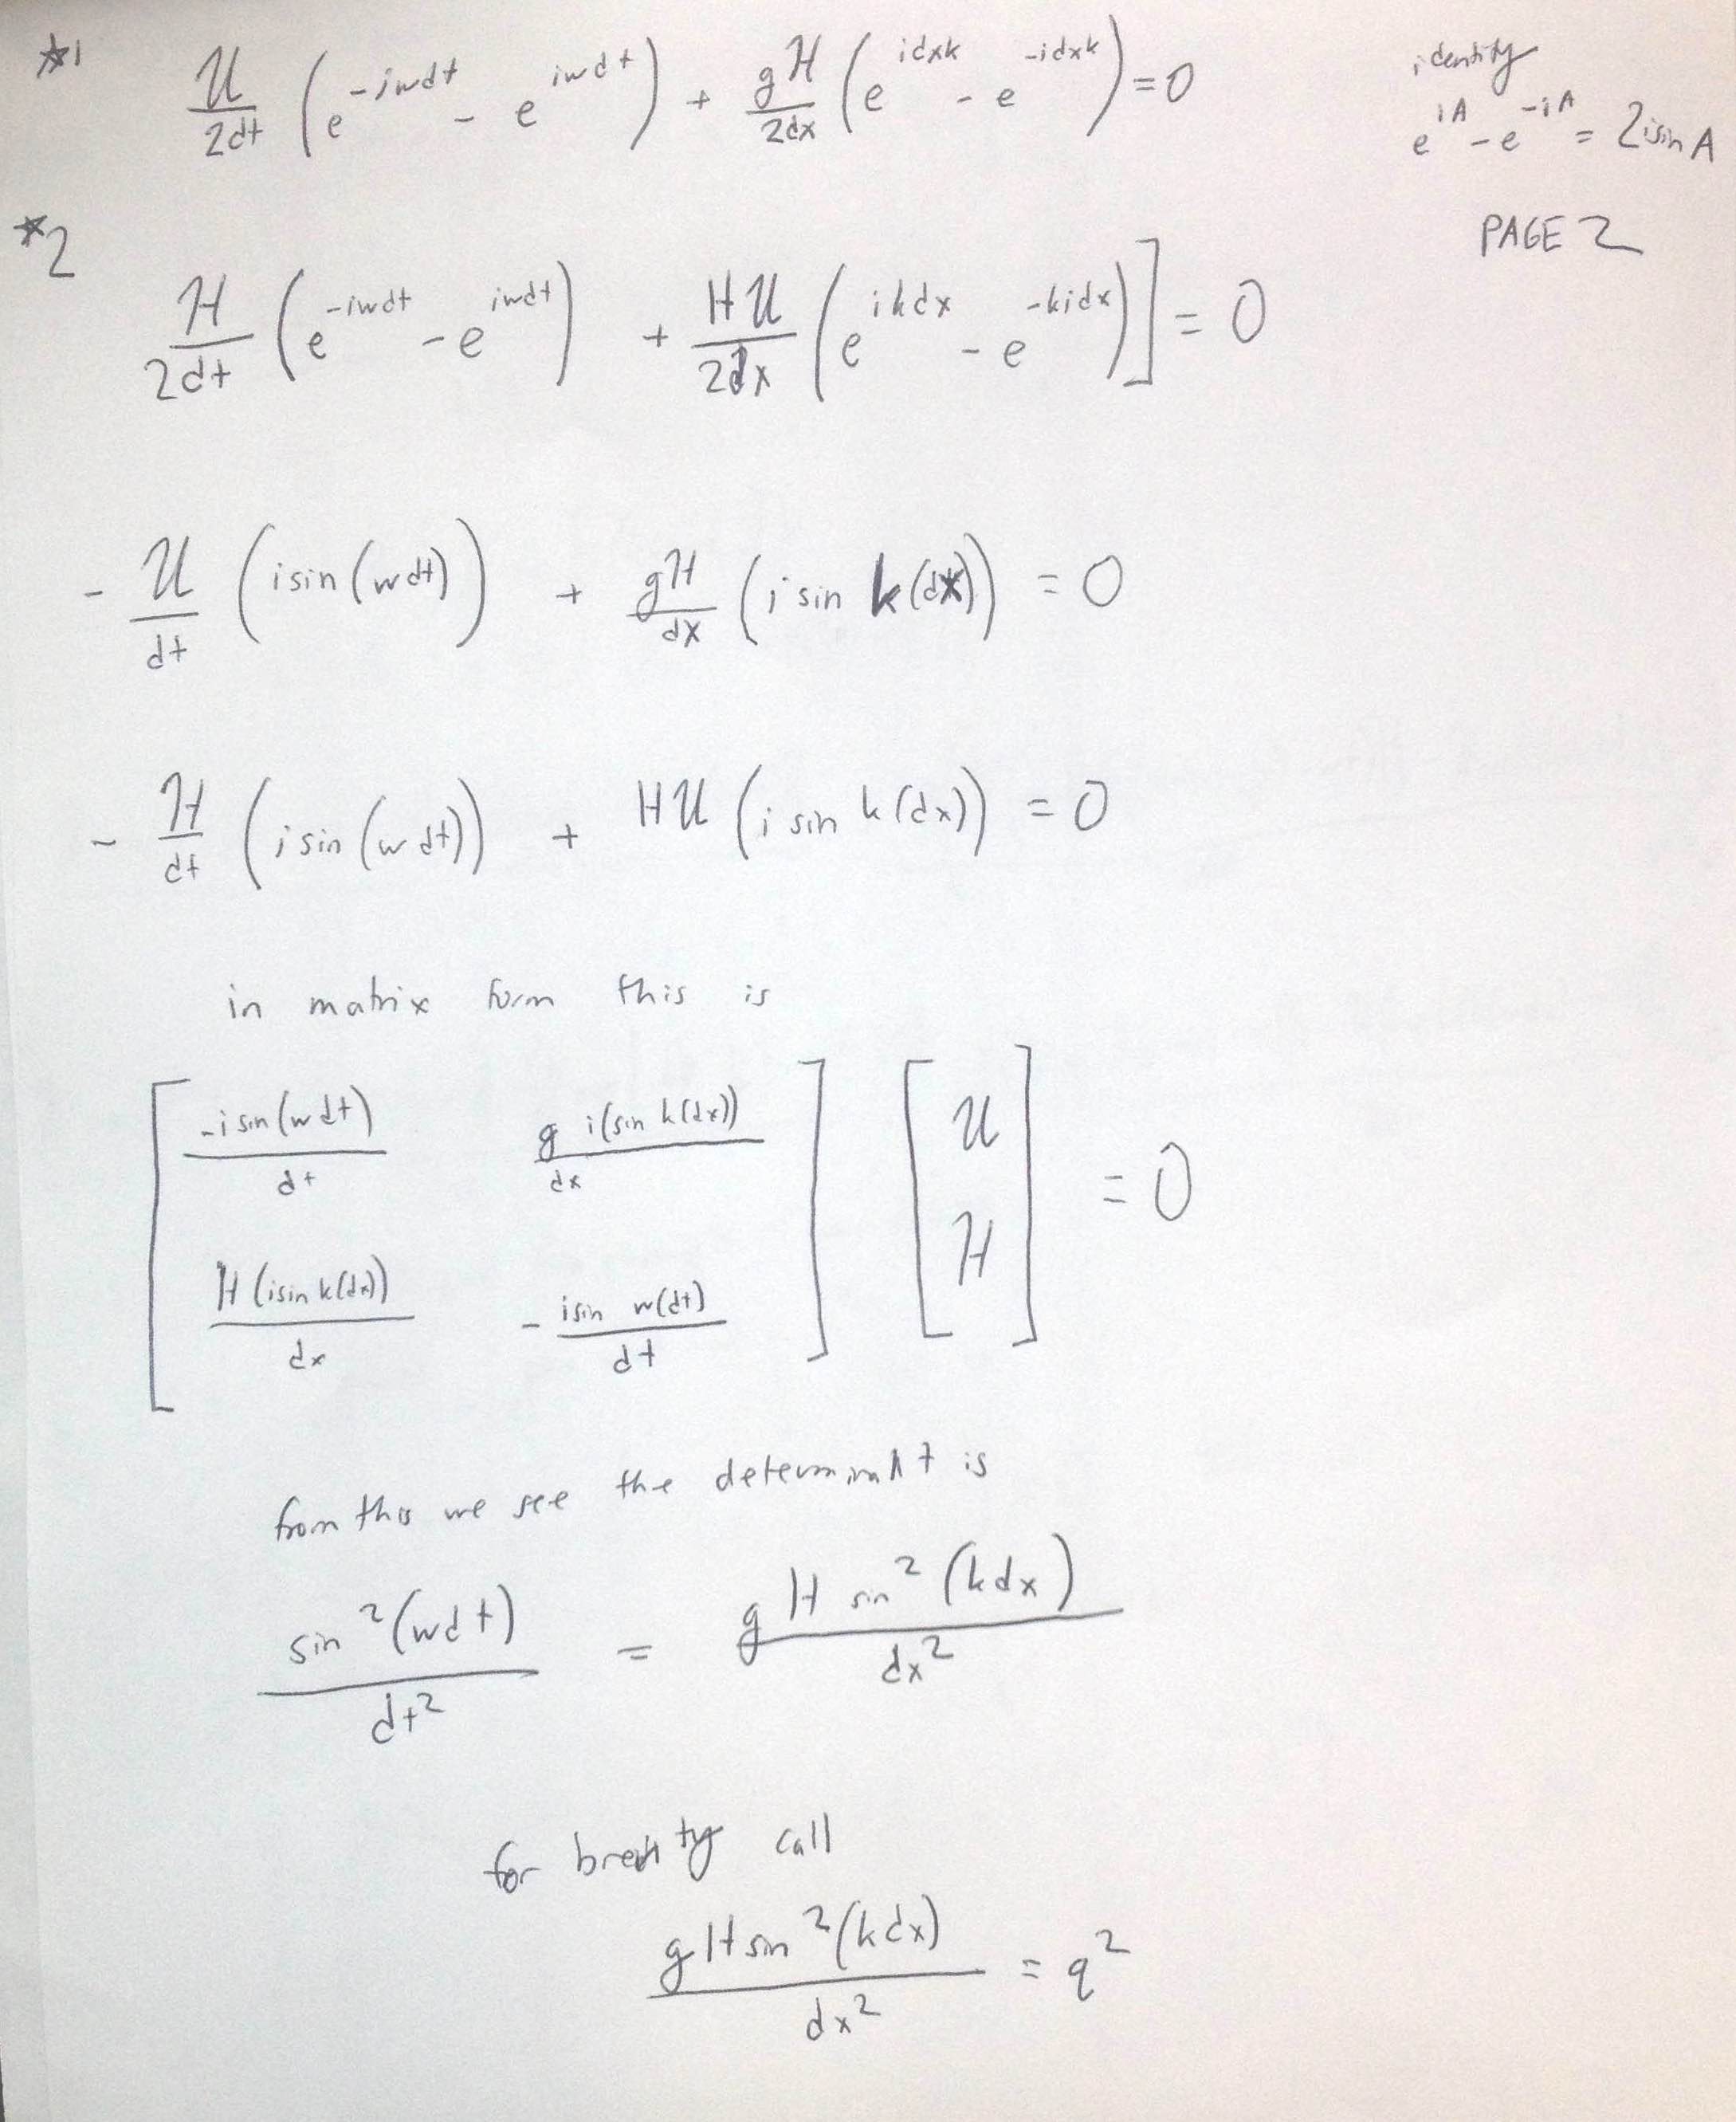 *1 𝒰/2dt (e^-iwdt - e^iwdt) + gℋ/2dx (e^idxk - e^-idxk) = 0
identity
e^iA - e^-iA = 2isin A
PAGE 2
*2 ℋ/2dt (e^-iwdt - e^iwdt) + H𝒰/2dx (e^ikdx - e^-kidx)] = 0
- 𝒰/dt (isin(wdt)) + gℋ/dx (i sin k(dx)) = 0
- ℋ/dt (i sin(wdt)) + H𝒰 (i sin k(dx)) = 0
in matrix form this is
[ -i sin(wdt)/dt   g i(sin k(dx))/dx ] [ 𝒰 ]
[ H(isin k(dx))/dx   - isin w(dt)/dt ] [ ℋ ] = 0
from this we see the determinant is
sin²(wdt)/dt² = g H sin²(kdx)/dx²
for brevity call
gH sin²(kdx)/dx² = q²